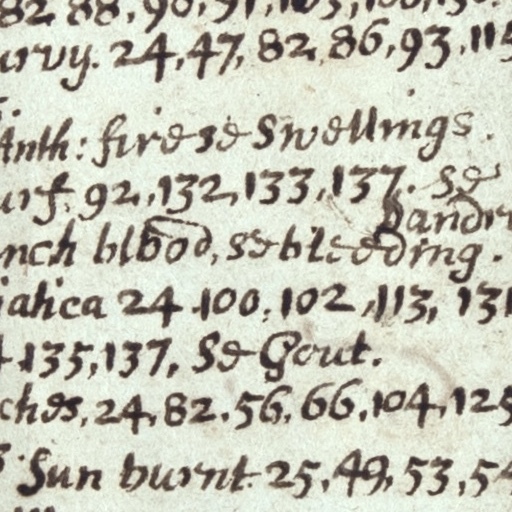 82, 88, 90, 91, 103, 106, 130.
urvy. 24, 47, 82, 86, 93, 115
Anth: fire se Swellings.
urf. 92, 132, 133, 137. se
Dandr
nch blood, se bleeding.
iatica 24. 100. 102, 113, 131
135, 137, Se Gout.
ches, 24, 82. 56, 66, 104, 125
Sun burnt. 25, 49, 53, 54